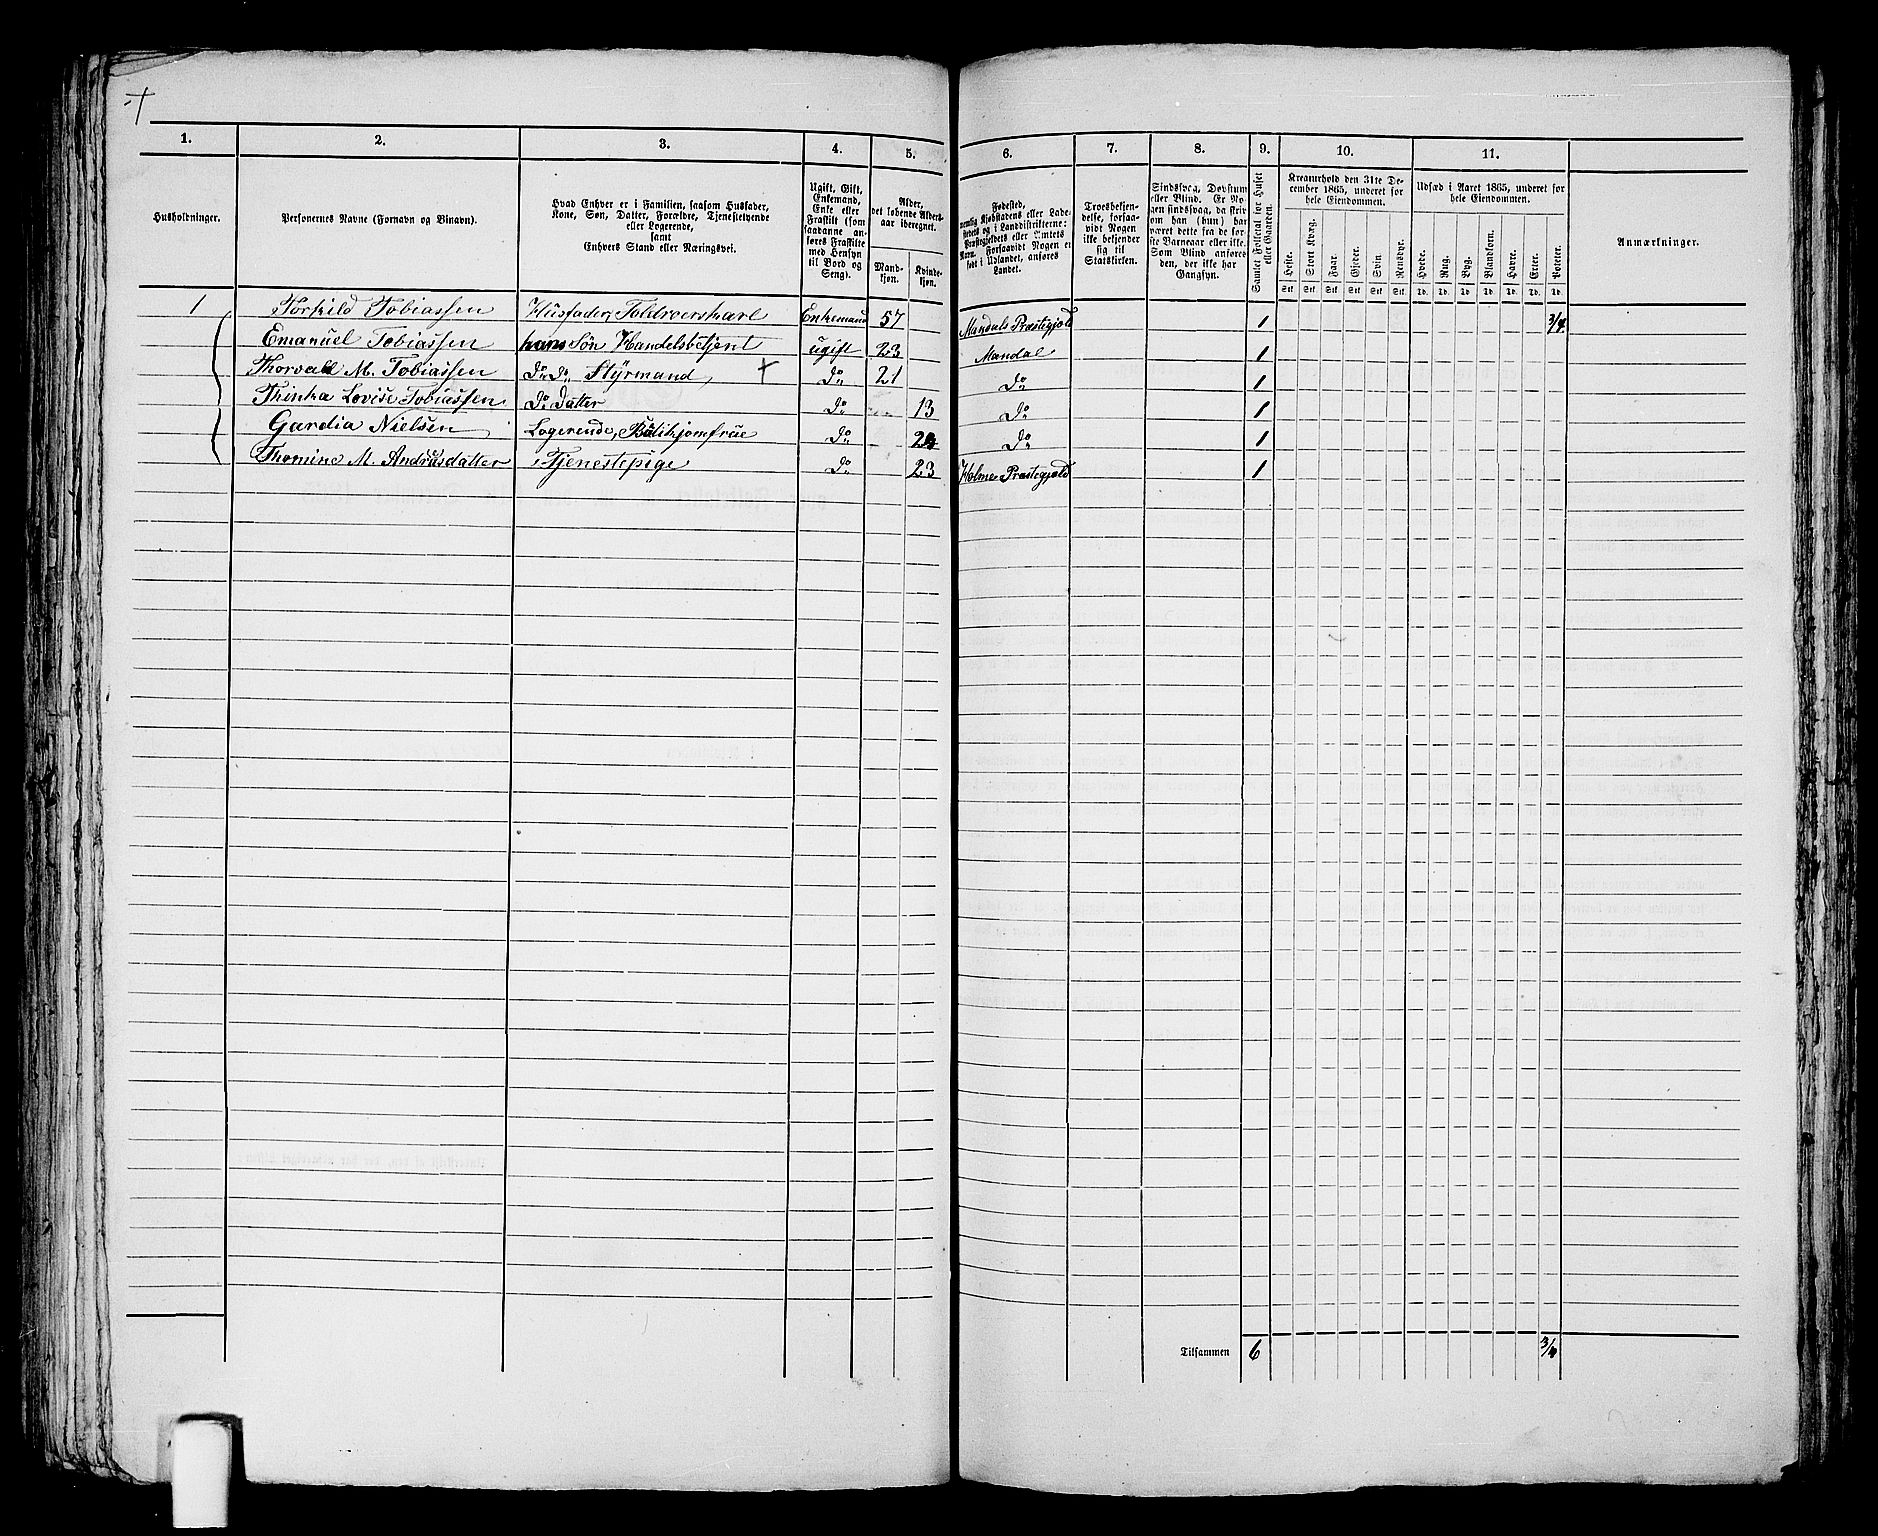 1. 2. 3. 4. 5. 6. 7. 8. 9. 10. 11.
Husholdninger.
Personernes Navne (Fornavn og Binavn).
Hvad Enhver er i Familien, saasom Husfader,
Kone, Søn, Datter, Forældre, Tjenestetyende
eller Logerende,
samt
Enhvers Stand eller Næringsvei.
Ugift, Gift,
Enkemand,
Enke eller
Fraskilt (som
saadanne an-
føres Fraskilte
med Hensyn
til Bord og
Seng).
Alder,
det løbende Alders-
aar iberegnet.
Mand-
kjøn.
Kvinde-
kjøn.
Fødested,
nemlig Kjøbstadens eller Lade-
stedets og i Landdistrikterne:
Præstegjeldets eller Amtets
Navn. Forsaavidt Nogen er
født i Udlandet, anføres
Landet.
Troesbekjen-
delse, forsaa-
vidt Nogen
ikke bekjender
sig til
Statskirken.
Sindssvag, Døvstum
eller Blind. Er No-
gen sindssvag, da skriv
om han (hun) har
været dette fra de før-
ste Barneaar eller ikke.
Som Blind anføres
den, der ikke har
Gangsyn.
Samlet Folketal for Huset
eller Gaarden.
Kreaturhold den 31te De-
cember 1865, underet for
hele Eiendommen.
Heste. Stort Kvæg. Faar. Gjeter. Svin. Rensdyr.
Stk. Stk. Stk. Stk. Stk. Stk.
Udsæd i Aaret 1865, underet for
hele Eiendommen.
Hvede. Rug. Byg. Blandkorn. Havre. Erter. Poteter.
Td. Td. Td. Td. Td. Td. Td.
Anmærkninger.
1 Torkild Tobiassen Husfader, Toldroerskarl Enkemand 57 Mandals Præstegjeld 1 3/4
Emanuel Tobiassen hans Søn Handelsbetjent ugift 23 Mandal 1
Thorvald M. Tobiassen do do Styrmand + do 21 do 1
Thinka Lovise Tobiassen do Datter do 13 do 1
Gardia Nielsen Logerende, Butikjomfrue do do 1
Thomine M. Andreasdatter Tjenestepige do 23 Holme Præstegjeld 1
Tilsammen 6 3/4